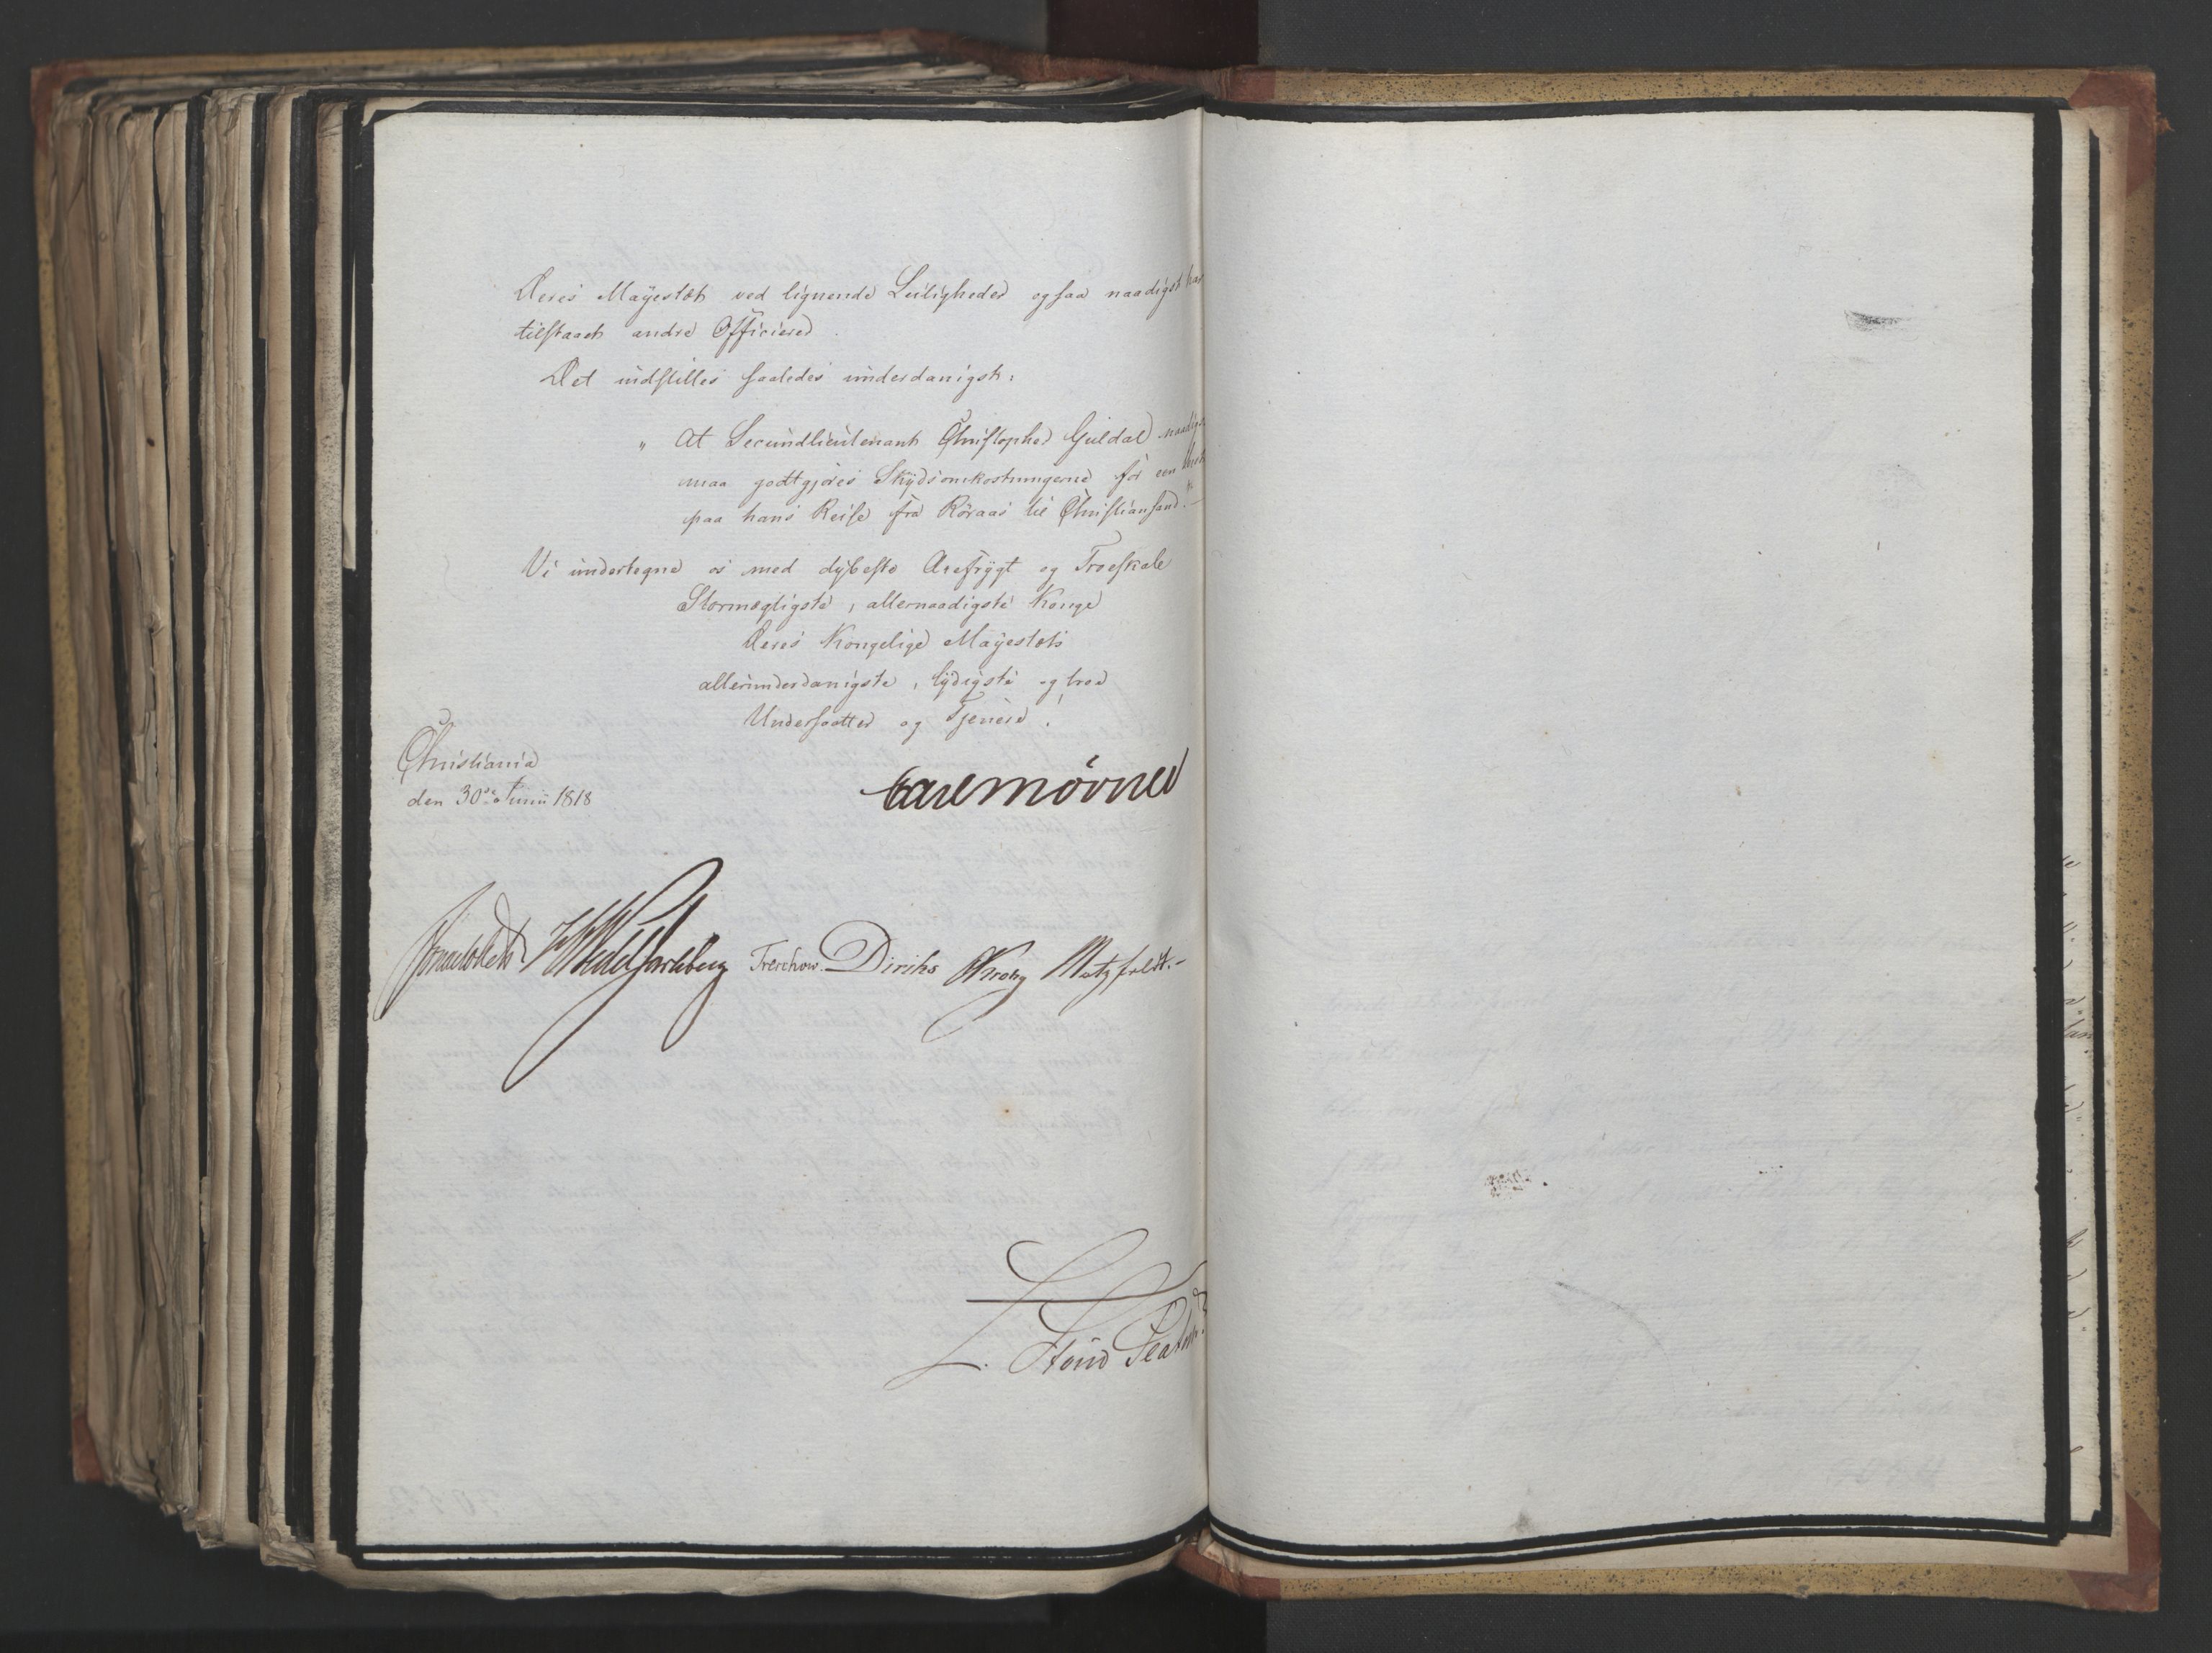 Deres Mayestæt ved lignende Leiligheder ogsaa naadigst har
tilstaaet andre Officierer.
Det indstilles saaledes underdanigst:
" At Secundlieutenant Christopher Guldal naadigst
maa godtgjøres Skydsomkostningerne for een Hest
paa hans Reise fra Röraas til Christiansand."-
Vi undertegne os med dybeste Ærefrygt og Troeskab
Stormægtigste, allernaadigste Konge
Deres Kongelige Mayestæts
allerunderdanigste, lydigste og troe
Undersaatter og Tjenere.
Christiania
den 30te Junii 1818
Carl Mörner
Sommerhielm HWedel Jarlsberg Treschow. Diriks Krog Motzfeldt.-
L.